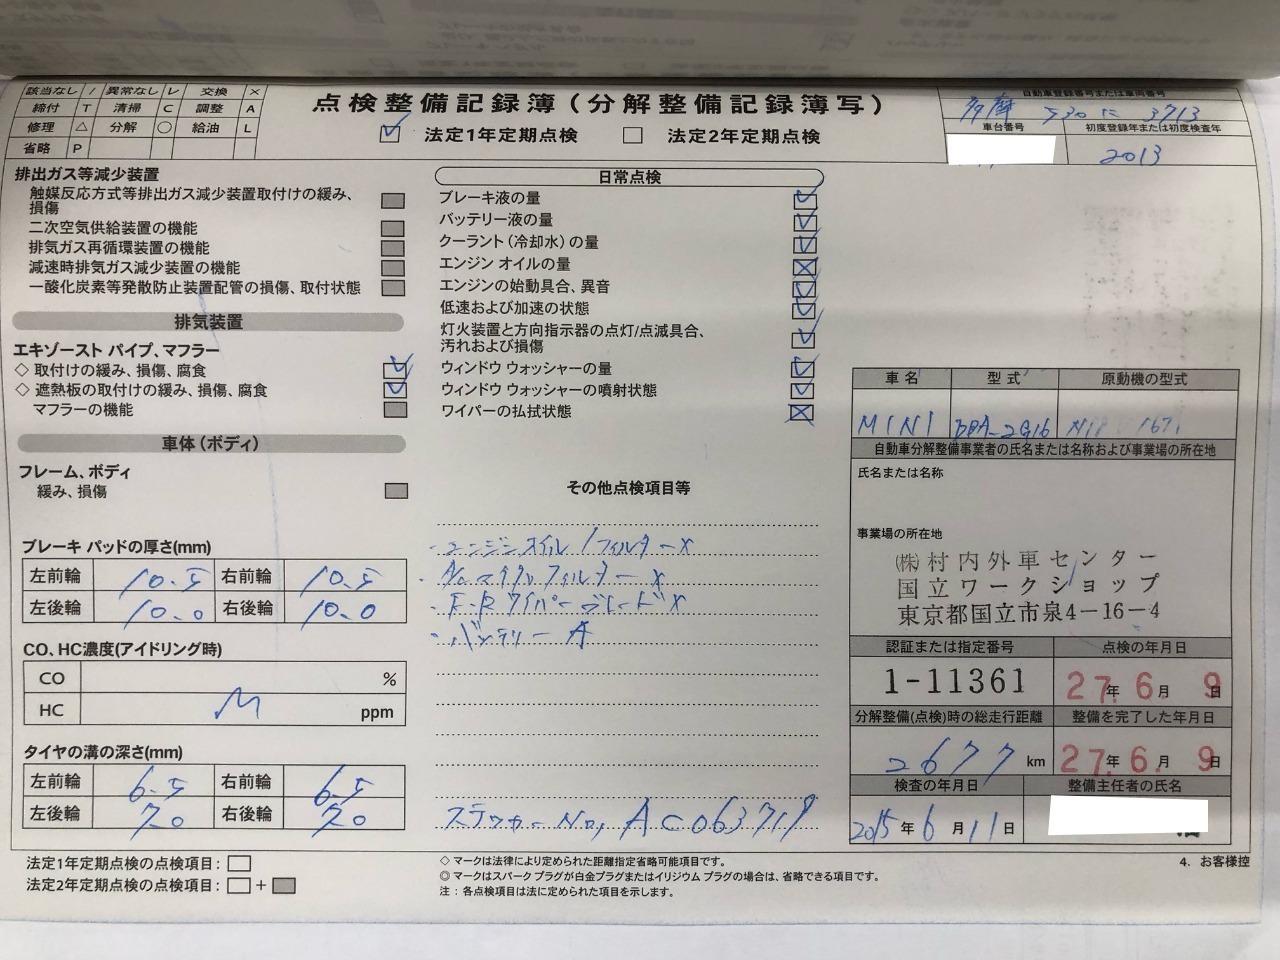 該当なし / 異常なし レ 交換 ×
締付 T 清掃 C 調整 A
修理 △ 分解 ○ 給油 L
省略 P
点検整備記録簿(分解整備記録簿写)
法定1年定期点検 法定2年定期点検
自動車登録番号または車両番号
多摩 530 に 3713
車台番号 初度登録年または初度検査年
2013
排出ガス等減少装置
触媒反応方式等排出ガス減少装置取付けの緩み、
損傷
二次空気供給装置の機能
排気ガス再循環装置の機能
減速時排気ガス減少装置の機能
一酸化炭素等発散防止装置配管の損傷、取付状態
排気装置
エキゾースト パイプ、マフラー
◇ 取付けの緩み、損傷、腐食
◇ 遮熱板の取付けの緩み、損傷、腐食
マフラーの機能
車体(ボディ)
フレーム、ボディ
緩み、損傷
ブレーキ パッドの厚さ(mm)
左前輪 10.5 右前輪 10.5
左後輪 10.0 右後輪 10.0
CO、HC濃度(アイドリング時)
CO %
HC ppm
タイヤの溝の深さ(mm)
左前輪 6.5 右前輪 6.5
左後輪 7.0 右後輪 7.0
法定1年定期点検の点検項目:
法定2年定期点検の点検項目: +
日常点検
ブレーキ液の量
バッテリー液の量
クーラント(冷却水)の量
エンジン オイルの量
エンジンの始動具合、異音
低速および加速の状態
灯火装置と方向指示器の点灯/点滅具合、
汚れおよび損傷
ウィンドウ ウォッシャーの量
ウィンドウ ウォッシャーの噴射状態
ワイパーの払拭状態
その他点検項目等
・エンジンオイル/フィルター×
フィルター ×
・F・Rワイパーブレード×
・バッテリー A
ステッカーNo, AC063719
◇ マークは法律により定められた距離指定省略可能項目です。
◎ マークはスパーク プラグが白金プラグまたはイリジウム プラグの場合は、省略できる項目です。
注:各点検項目は法に定められた項目を示します。
車名 型式 原動機の型式
MINI DBA-ZG16
自動車分解整備事業者の氏名または名称および事業場の所在地
氏名または名称
事業場の所在地
㈱村内外車センター
国立ワークショップ
東京都国立市泉4-16-4
認証または指定番号 点検の年月日
1-11361 27年 6月 9日
分解整備(点検)時の総走行距離 整備を完了した年月日
2677 km 27年 6月 9日
検査の年月日 整備主任者の氏名
2015年6月11日
4. お客様控